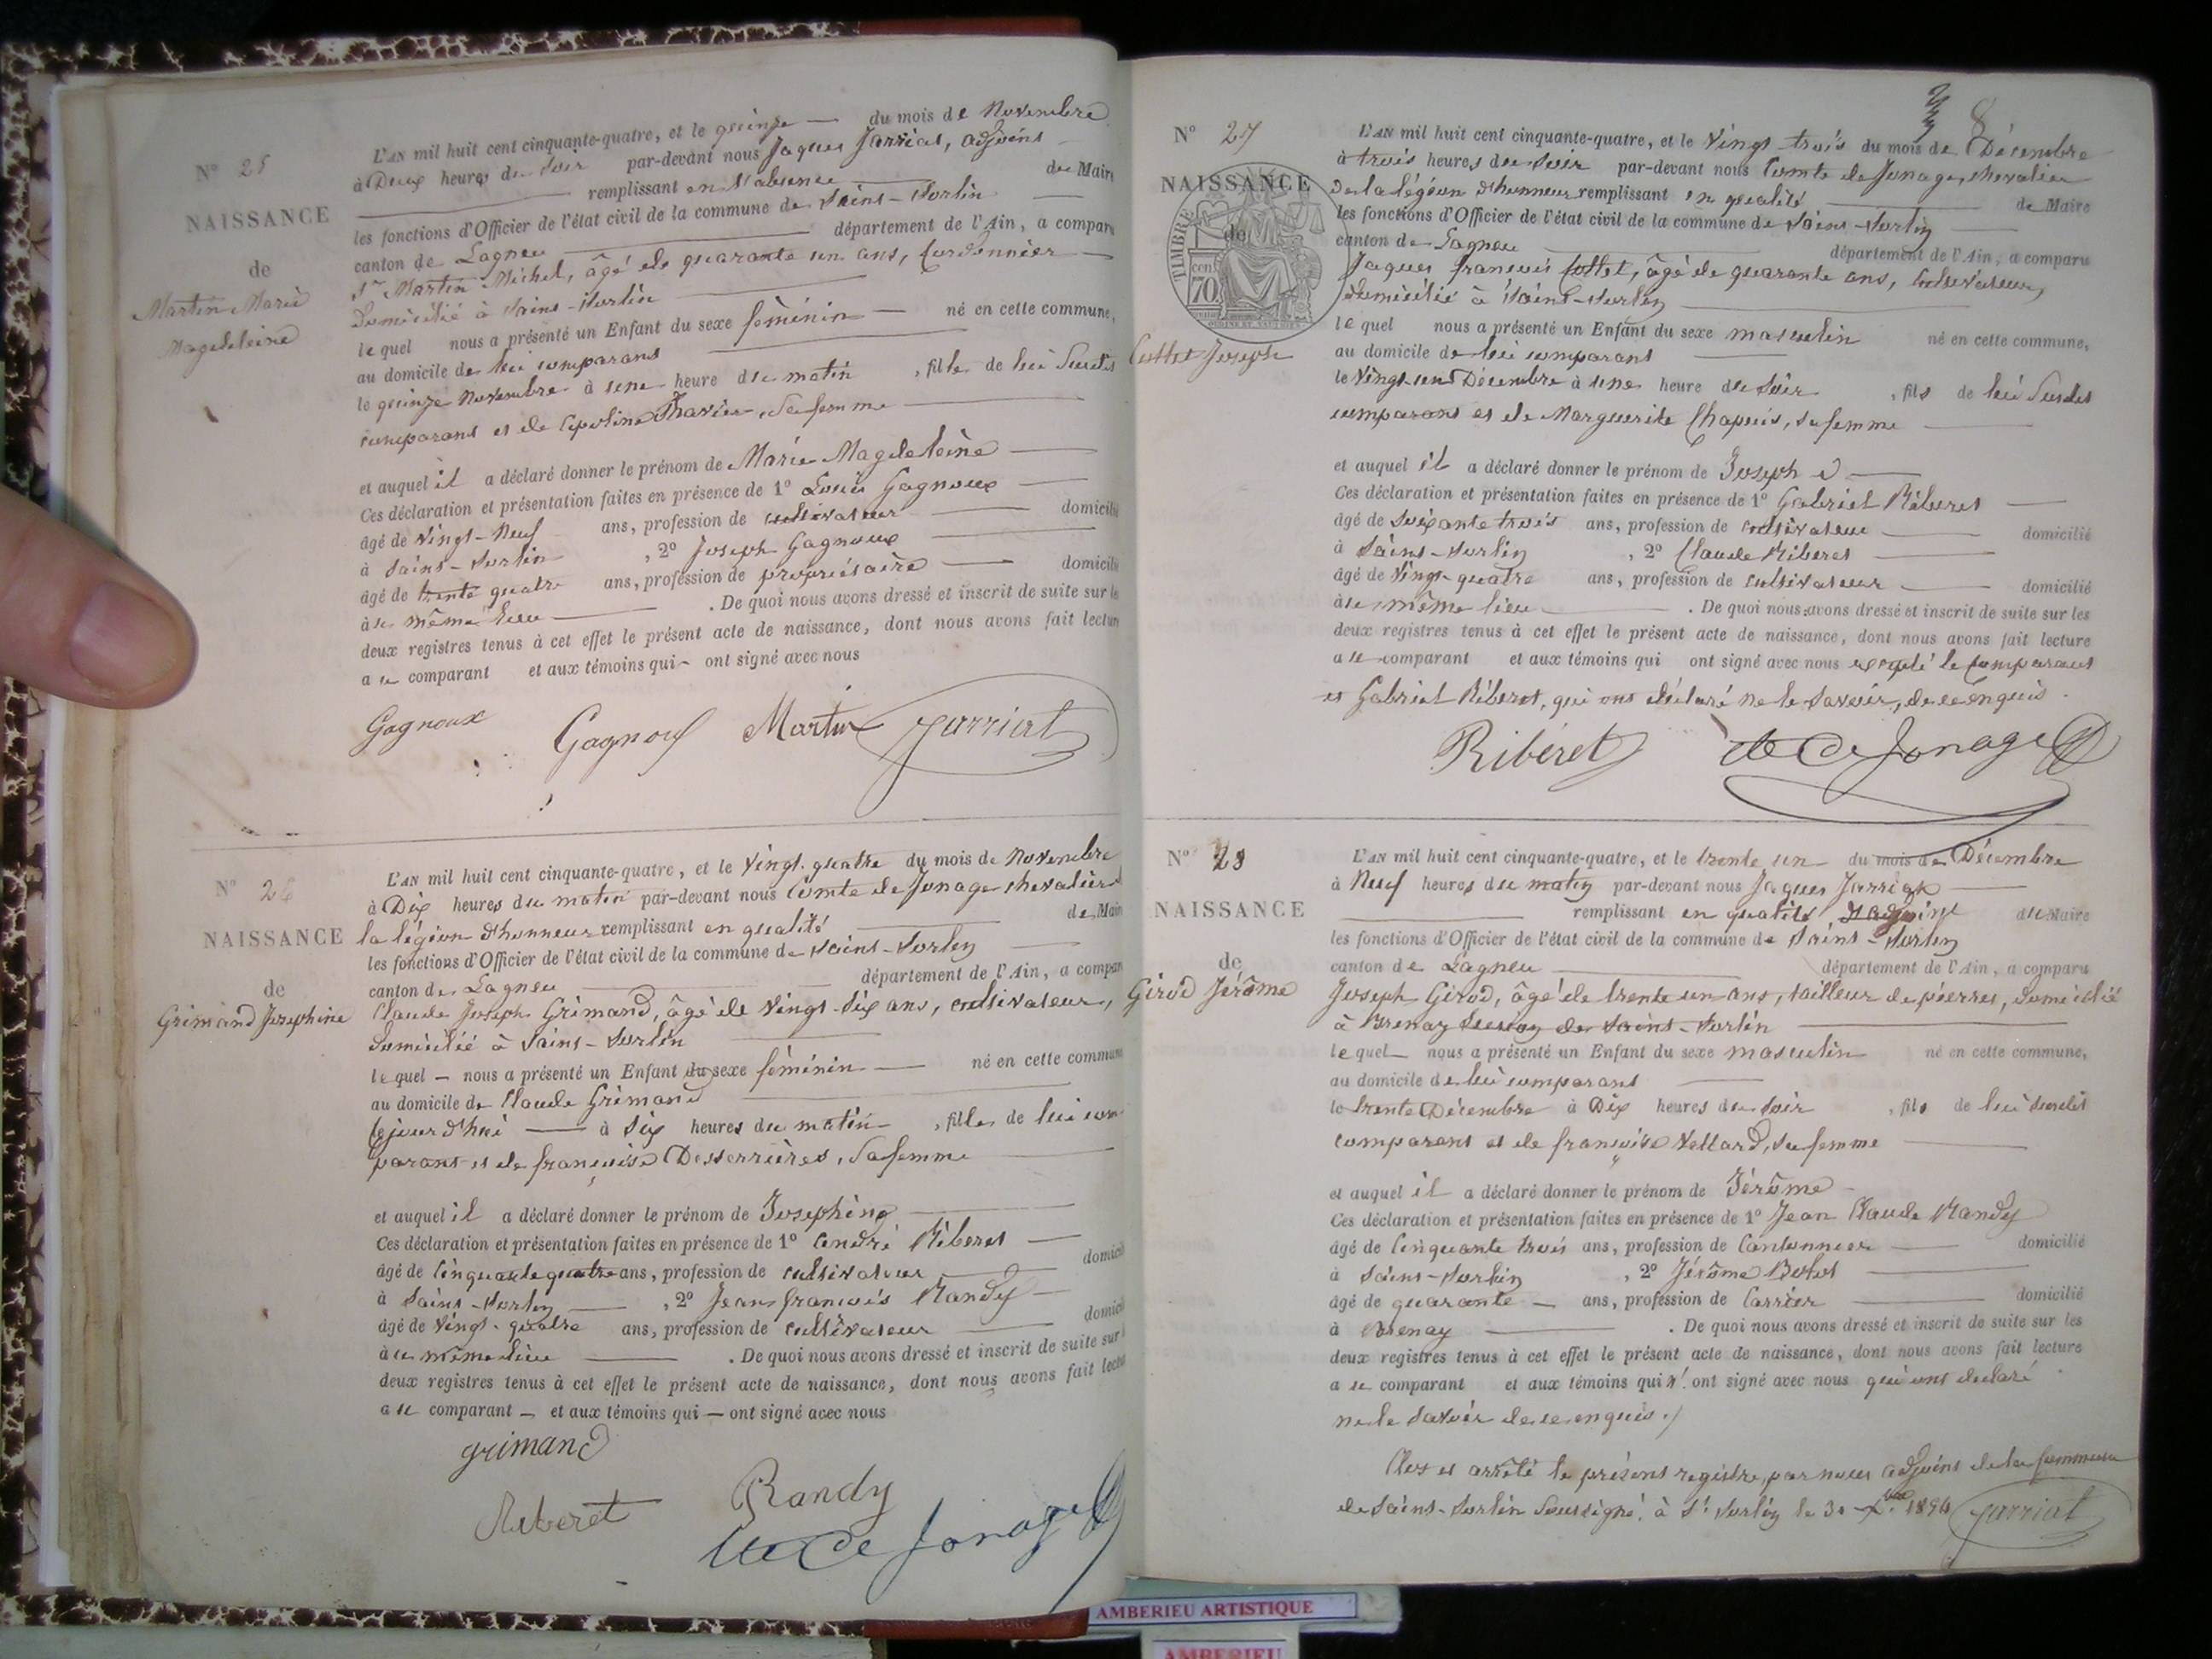 N° 25
NAISSANCE
de
Martin Marie
Magdeleine
L'AN mil huit cent cinquante-quatre, et le quinze du mois de Novembre
à Deux heures du soir par-devant nous Jaques Jarriat, adjoint
remplissant en l'absence du Maire
les fonctions d'Officier de l'état civil de la commune de Saint-Sorlin
canton de Lagneu département de l'Ain, a comparu
Sr Martin Michel, âgé de quarante un ans, Cordonnier
Domicilié à Saint-Sorlin
lequel nous a présenté un Enfant du sexe féminin né en cette commune,
au domicile de lui comparant
le quinze Novembre à une heure du matin, fille de lui Susdit
comparant et de Thavier, Sa femme
et auquel il a déclaré donner le prénom de Marie Magdeleine
Ces déclaration et présentation faites en présence de 1° Louis Gagnoux
âgé de Vingt-Neuf ans, profession de cultivateur domicilié
à Saint-Sorlin, 2° Joseph Gagnoux
âgé de trente quatre ans, profession de propriétaire domicilié
à ce même lieu. De quoi nous avons dressé et inscrit de suite sur le
deux registres tenus à cet effet le présent acte de naissance, dont nous avons fait lecture
a ce comparant et aux témoins qui ont signé avec nous
Gagnoux Gagnoux Martin Jarriat
N° 26
NAISSANCE
de
Grimand Josephine
L'AN mil huit cent cinquante-quatre, et le Vingt-quatre du mois de Novembre
à Dix heures du matin par-devant nous Comte de Jonage chevalier
la légion d'honneur remplissant en qualité de Maire
les fonctions d'Officier de l'état civil de la commune de Saint-Sorlin
canton de Lagneu département de l'Ain, a comparu
Claude Joseph Grimand, âgé de Vingt-Six ans, cultivateur,
Domicilié à Saint-Sorlin
lequel nous a présenté un Enfant du sexe féminin né en cette commune
au domicile de Claude Grimand
ce jour d'hui à Six heures du matin, fille de lui com
parant et de françoise Desserrières, Sa femme
et auquel il a déclaré donner le prénom de Josephine
Ces déclaration et présentation faites en présence de 1° André Riberet
âgé de Cinquante quatre ans, profession de cultivateur domicilié
à Saint-Sorlin, 2° Jean françois Randy
âgé de Vingt-quatre ans, profession de cultivateur domicilié
à ce même lieu. De quoi nous avons dressé et inscrit de suite sur
deux registres tenus à cet effet le présent acte de naissance, dont nous avons fait lecture
a ce comparant et aux témoins qui ont signé avec nous
grimand
Riberet Randy
Cte de Jonage
8
N° 27
NAISSANCE
de
TIMBRE
70
Cottet Joseph
L'AN mil huit cent cinquante-quatre, et le Vingt trois du mois de Décembre
à trois heures du soir par-devant nous Comte de Jonage, chevalier
de la légion d'honneur remplissant en qualité de Maire
les fonctions d'Officier de l'état civil de la commune de Saint-Sorlin
canton de Lagneu département de l'Ain, a comparu
Jaques françois Cottet, âgé de quarante ans, Cultivateur,
Domicilié à Saint-Sorlin
lequel nous a présenté un Enfant du sexe masculin né en cette commune,
au domicile de lui comparant
le Vingt-un Décembre à une heure du Soir, fils de lui Susdit
comparant et de Marguerite Chapuis, sa femme
et auquel il a déclaré donner le prénom de Joseph
Ces déclaration et présentation faites en présence de 1° Gabriel Riberet
âgé de Soixante trois ans, profession de cultivateur domicilié
à Saint-Sorlin, 2° Claude Riberet
âgé de Vingt-quatre ans, profession de cultivateur domicilié
à ce même lieu. De quoi nous avons dressé et inscrit de suite sur les
deux registres tenus à cet effet le présent acte de naissance, dont nous avons fait lecture
a ce comparant et aux témoins qui ont signé avec nous excepté le Comparant
et Gabriel Riberet, qui ont déclaré ne le Savoir, de ce enquis.
Ribéret Cte de Jonage
N° 28
NAISSANCE
de
Girod Jérôme
L'AN mil huit cent cinquante-quatre, et le trente un du mois de Décembre
à Neuf heures du matin par-devant nous Jaques Jarriat
remplissant en qualité d'adjoint du Maire
les fonctions d'Officier de l'état civil de la commune de Saint-Sorlin
canton de Lagneu département de l'Ain, a comparu
Joseph Girod, âgé de trente un ans, tailleur de pierres, Domicilié
à Brenay de Saint-Sorlin
lequel nous a présenté un Enfant du sexe masculin né en cette commune,
au domicile de lui comparant
le trente Décembre à Dix heures du Soir, fils de lui Susdit
comparant et de françoise Vettard, Sa femme
et auquel il a déclaré donner le prénom de Jérôme
Ces déclaration et présentation faites en présence de 1° Jean Claude Randy
âgé de Cinquante trois ans, profession de Cantonnier domicilié
à Saint-Sorlin, 2° Jérôme
âgé de quarante ans, profession de Carrier domicilié
à Brenay. De quoi nous avons dressé et inscrit de suite sur les
deux registres tenus à cet effet le présent acte de naissance, dont nous avons fait lecture
a ce comparant et aux témoins qui n'ont signé avec nous qui ont declaré
ne le savoir de ce enquis.
Clos et arrêté le présent registre, par nous adjoint de la Commune
de Saint-Sorlin Soussigné, à St Sorlin le 31 Xbre 1854 Jarriat
AMBERIEU ARTISTIQUE
AMBERIEU